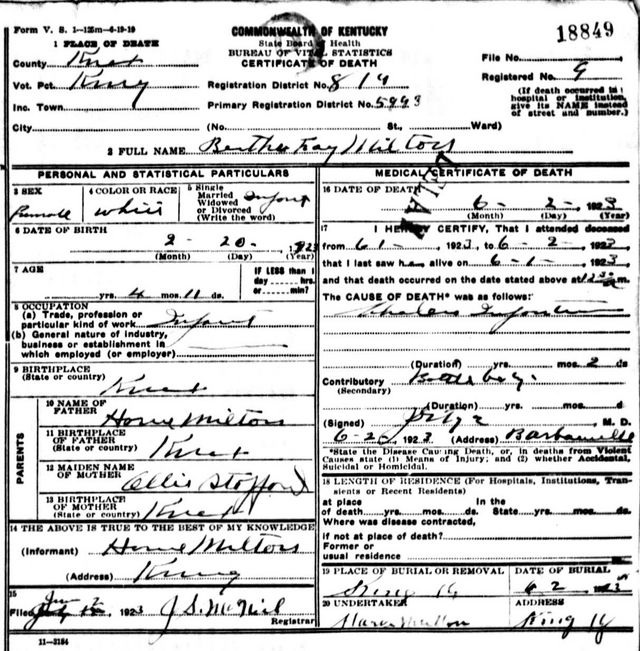 Form V. S. 1-125m-6-19-19
COMMONWEALTH OF KENTUCKY
State Board of Health
BUREAU OF VITAL STATISTICS
CERTIFICATE OF DEATH
18849
1 PLACE OF DEATH
County Knox
Vot. Pct. King
Inc. Town
City
File No.
Registered No. 9
(If death occurred in a hospital or institution, give its NAME instead of street and number.)
Registration District No. 819
Primary Registration District No. 5893
(No. St., Ward)
2 FULL NAME Bertha Fay Miltons
PERSONAL AND STATISTICAL PARTICULARS
3 SEX Female
4 COLOR OR RACE White
5 Single Married Widowed or Divorced (Write the word) Infant
6 DATE OF BIRTH
2- 20- 1923
(Month) (Day) (Year)
7 AGE
yrs. 4 mos. 11 ds.
IF LESS than 1 day hrs. or min?
8 OCCUPATION
(a) Trade, profession or
particular kind of work Infant
(b) General nature of industry,
business or establishment in
which employed (or employer)
9 BIRTHPLACE
(State or country) Knox
PARENTS
10 NAME OF FATHER Miltons
11 BIRTHPLACE OF FATHER (State or country) Knox
12 MAIDEN NAME OF MOTHER Ollis Stafford
13 BIRTHPLACE OF MOTHER (State or country) Knox
14 THE ABOVE IS TRUE TO THE BEST OF MY KNOWLEDGE
(Informant) Miltons
(Address) King
15
Filed 1923 J S McNeil
Registrar
11-3184
MEDICAL CERTIFICATE OF DEATH
16 DATE OF DEATH
6- 2- 1923
(Month) (Day) (Year)
17 I HEREBY CERTIFY, That I attended deceased
from 6 1- 1923, to 6-2-, 1923
that I last saw h alive on 6-1-, 1923
and that death occurred on the date stated above at m.
The CAUSE OF DEATH* was as follows:
Cholera Infantum
(Duration) yrs. mos. 2 ds
Contributory
(Secondary)
(Duration) yrs. mos. d
(Signed) M. D.
1923 (Address) Barbourville
*State the Disease Causing Death, or, in deaths from Violent
Causes state (1) Means of Injury; and (2) whether Accidental,
Suicidal or Homicidal.
18 LENGTH OF RESIDENCE (For Hospitals, Institutions, Transients or Recent Residents)
At place of death yrs. mos. ds. In the State yrs. mos. ds.
Where was disease contracted,
if not at place of death?
Former or
usual residence
19 PLACE OF BURIAL OR REMOVAL
King Ky
DATE OF BURIAL
6 2
20 UNDERTAKER
ADDRESS
King Ky